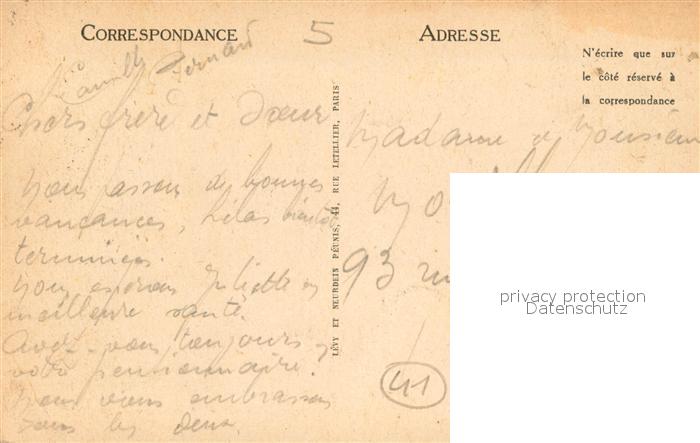 CORRESPONDANCE
5
ADRESSE
N'écrire que sur
le côté réservé à
la correspondance
Famille Bernard
Chers frère et sœur
Madame et Monsieur
Nous passons de bonnes
vancances, hélas bientôt
terminées.
Nous espérons Juliette en
meilleure santé.
Avez-vous toujours
votre pensionnaire.
Nous vous embrassons
tous les deux.
93 rue
41
LÉVY ET NEURDEIN RÉUNIS, 44, RUE LETELLIER, PARIS
privacy protection
Datenschutz